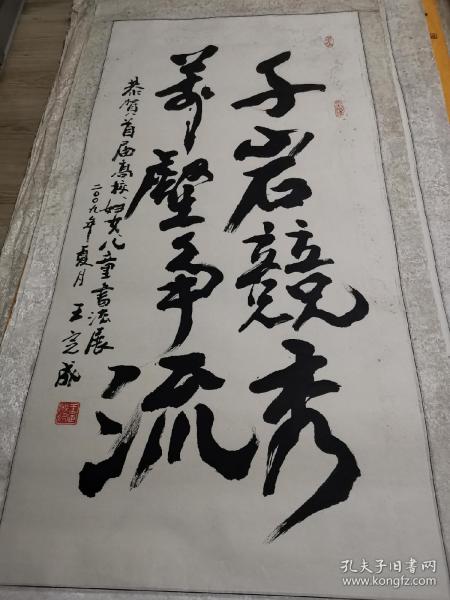 千岩競秀
萬壑爭流
恭賀首届高校妇女儿童書法展
二〇〇九年夏月
王定成
孔夫子旧书网
www.kongfz.com